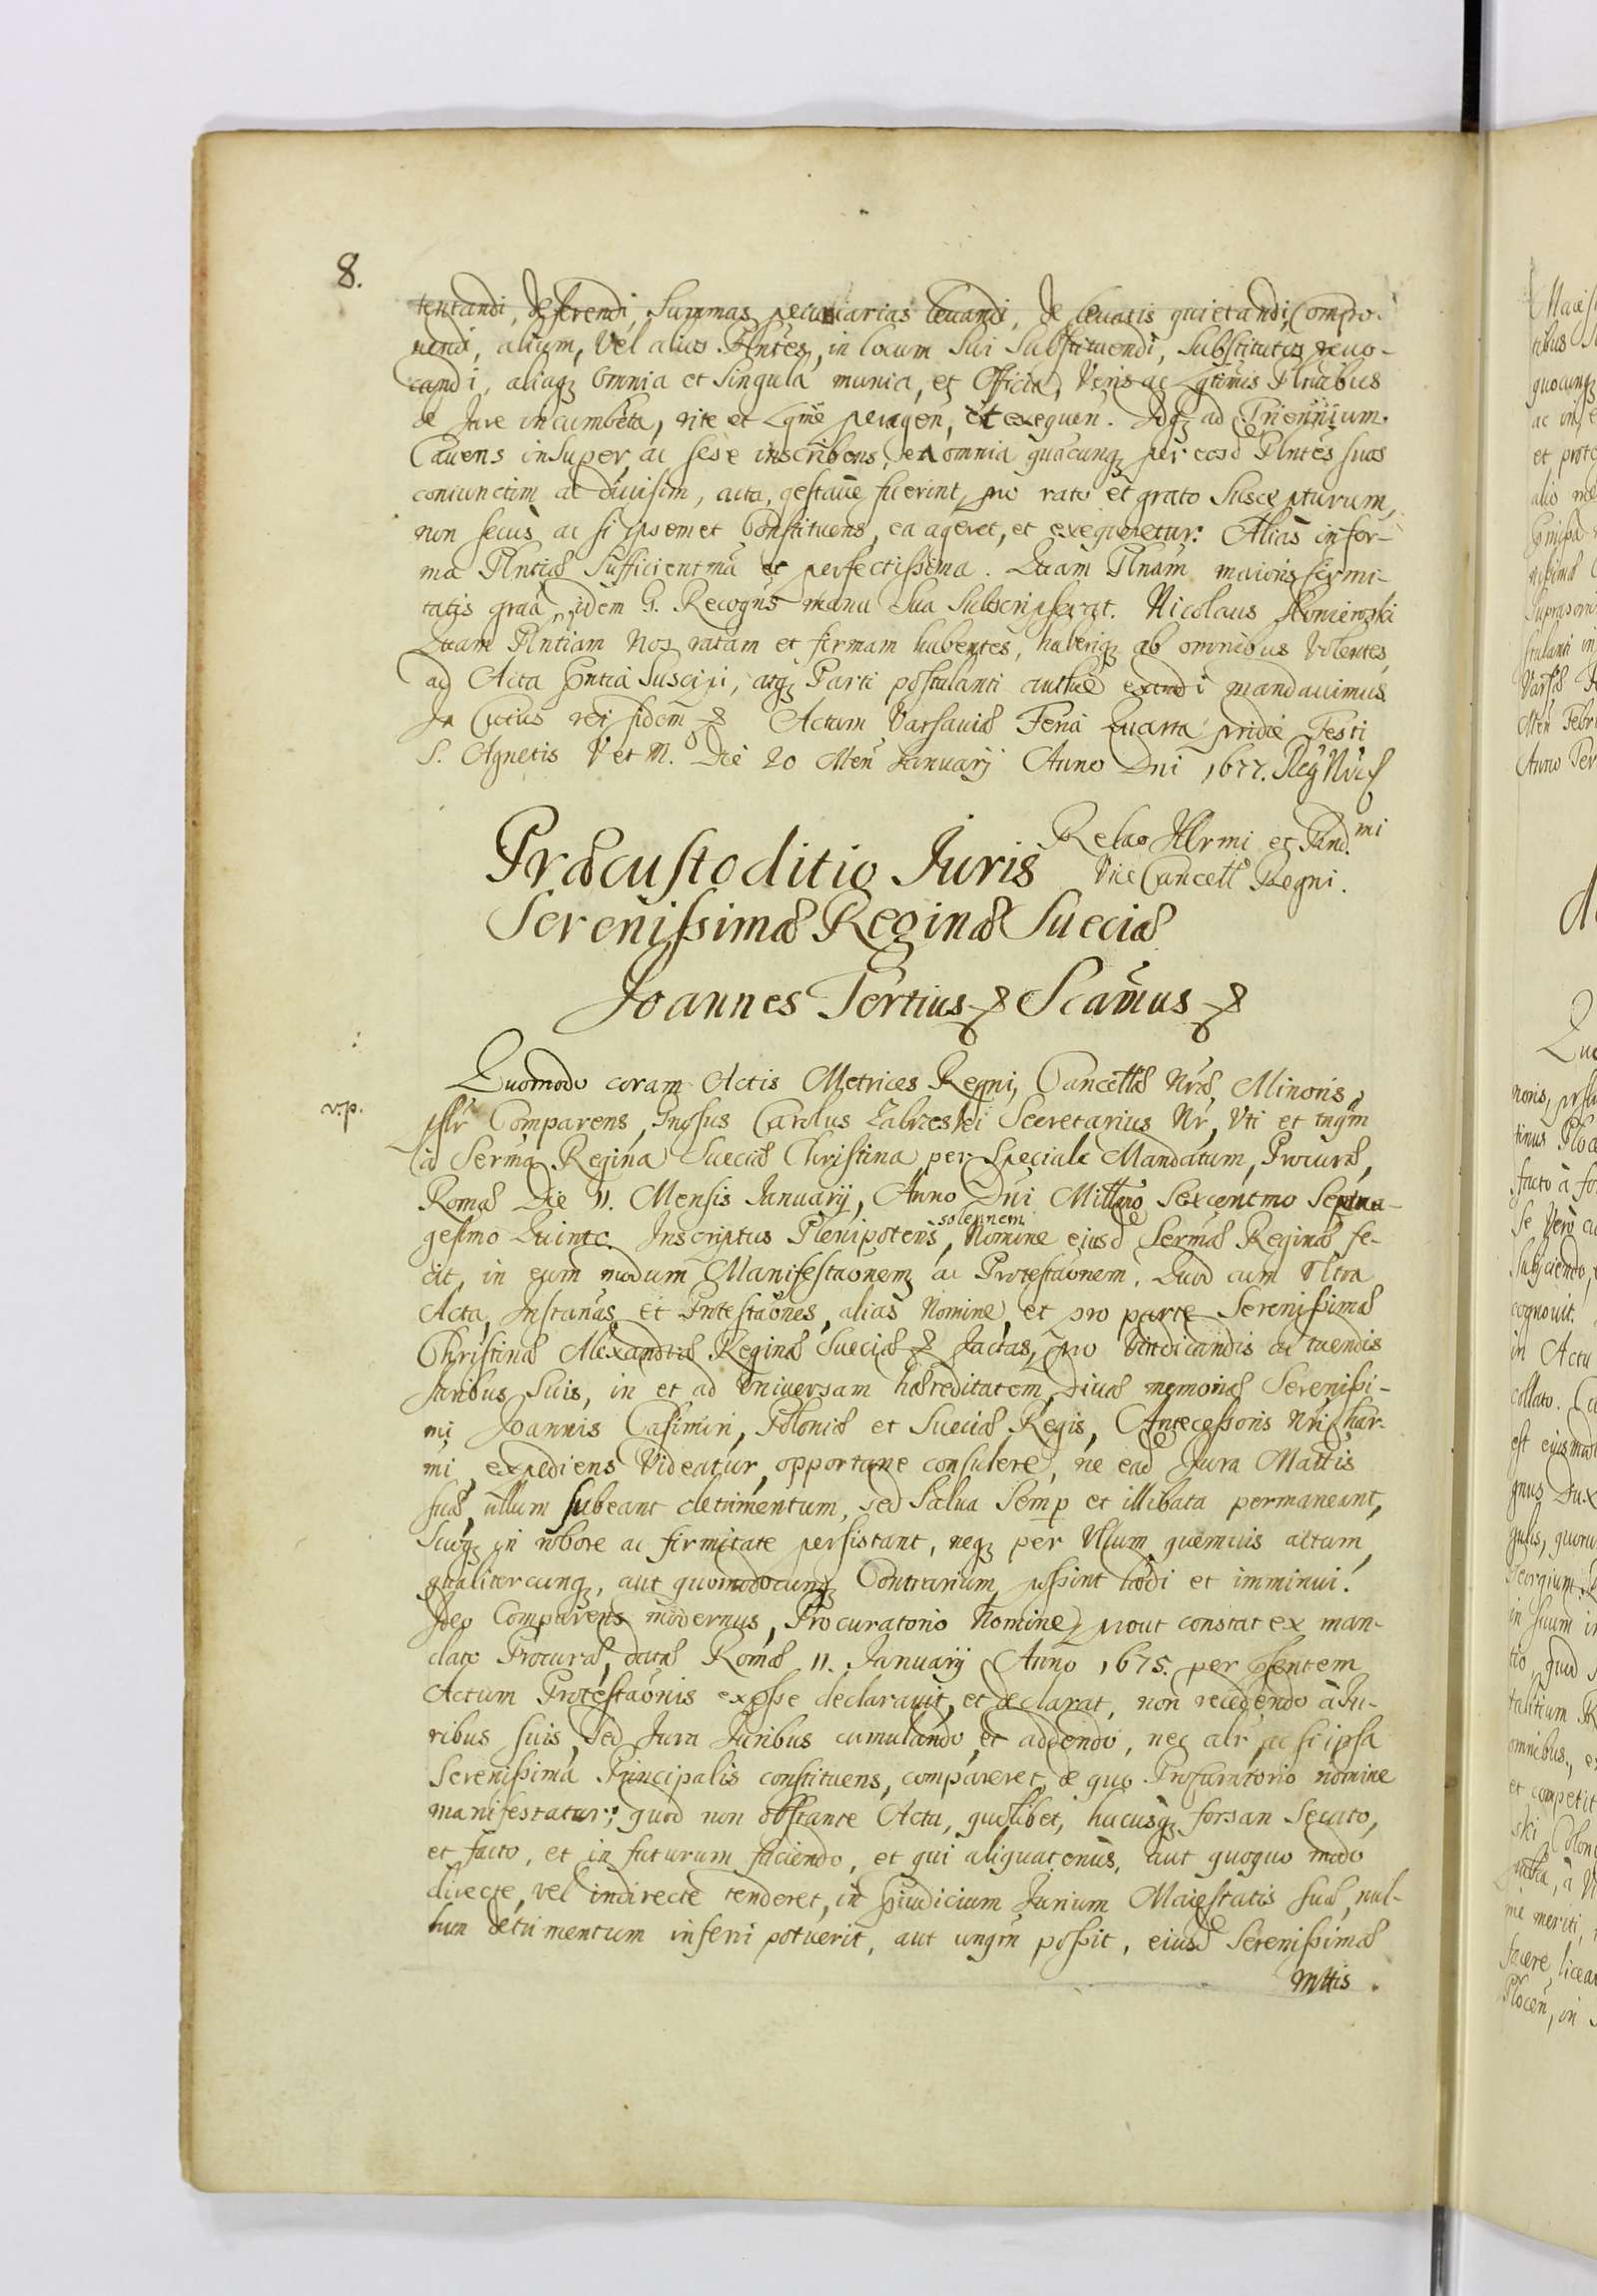 8.
tentandi, deferendi, Summas pecuniarias levandi, de levatis quietandi, Compo-
nendi, alium, Vel alios Plntes, in locum Sui Substituendi, Substitutos revo-
candi, aliaq3 omnia et Singula munia, et Officia, Veris ac Lgtimis Plntibus
de Jure incumbēta, rite et Lgmē peragen, et exequen. Idq3 ad Triennium.
Cavens insuper, ac sese inscribens, se omnia quæcunq3 per eosd Plntes suos
coniunctim ac divisim, acta, gestave fuerint, pro rato et grato Suscepturum,
non secus ac si ipsemet Constituens, ea ageret, et exequeretur. Alias in for-
ma Plntiæ Sufficientmā et perfectissima. Quam Plnām maioris firmi-
tatis graā, idem G. Recogns manu Sua Subscripserat. Nicolaus
Quam Plntiam Nos ratam et firmam habentes, haberiq3 ab omnibus Volentes,
ad Acta pntia Suscipi, atq3 Parti postulanti authcē extradi mandavimus
In Cuius rei fidem &c Actum Varsaviæ Feria Quarta pridie Festi
S. Agnetis V et M. Die 20 Men Januarij Anno Dni 1677. Reg Nri
Relao Illrmi et Rnd.mi
Vice Cancell Regni.
Præcustoditio Juris
Serenissimæ Reginæ Sueciæ
Joannes Tertius &c Scamus &c
Quomodo coram Actis Metrices Regni, Cancellæ Nræ, Minoris,
vp.
pslr Comparens, Gnosus Carolus Zabrieski Secretarius Nr, Uti et tnqm
a Serma Regina Sueciæ Christina per Speciale Mandatum, Procuræ,
Romæ Die 11. Mensis Januarij, Anno Dni Millmo Sexcentmo Septua-
gesimo Quinto. Inscriptus Plenipotens, Nomine eiusd Sermæ Reginæ fe-
solennem
cit, in eum modum Manifestaonem ac Protestaonem. Quod cum Ultra
Acta, Instanas, et Protestaones, alias Nomine, et pro parte Serenissimæ
Christinæ Alexandræ Reginæ Sueciæ &c factas, pro Vindicandis ac tuendis
Juribus Suis, in et ad Universam hæreditatem, Divæ memoriæ Serenissi-
mi Joannis Casimiri, Poloniæ et Sueciæ Regis, Antecessoris Nri Char-
mi, expediens Videatur, opportune consulere, ne ead Jura Mattis
suæ, ullum subeant detrimentum, sed Salva Semp et illibata permaneant,
Suoq3 in robore ac firmitate persistant, neq3 per Ullum quemvis actum,
qualitercunq3, aut quomodocunq3 Contrarium possint lædi et imminui.
Ideo Comparens modernus, Procuratorio Nomine, prout constat ex man-
dato Procuræ, datæ Romæ 11. Januarij Anno 1675. per psentem
Actum Protestaonis expsse declaravit, et declarat, non recedendo à Ju-
ribus suis, sed Jura Juribus cumulando, et addendo, nec alr, ac si ipsa
Serenissima Principalis constituens, compareret, de quo Procuratorio nomine
manifestatur; quod non obstante Actu, quolibet, hucusq3 forsan Secuto,
et facto, et in futurum faciendo, et qui aliquatenus, aut quoquo modo
directe, vel indirecte tenderet, in pjudicium Jurium Maiestatis suæ, nul-
lum detrimentum inferri potuerit, aut unqm possit, eiusd Serenissimæ
Mttis.